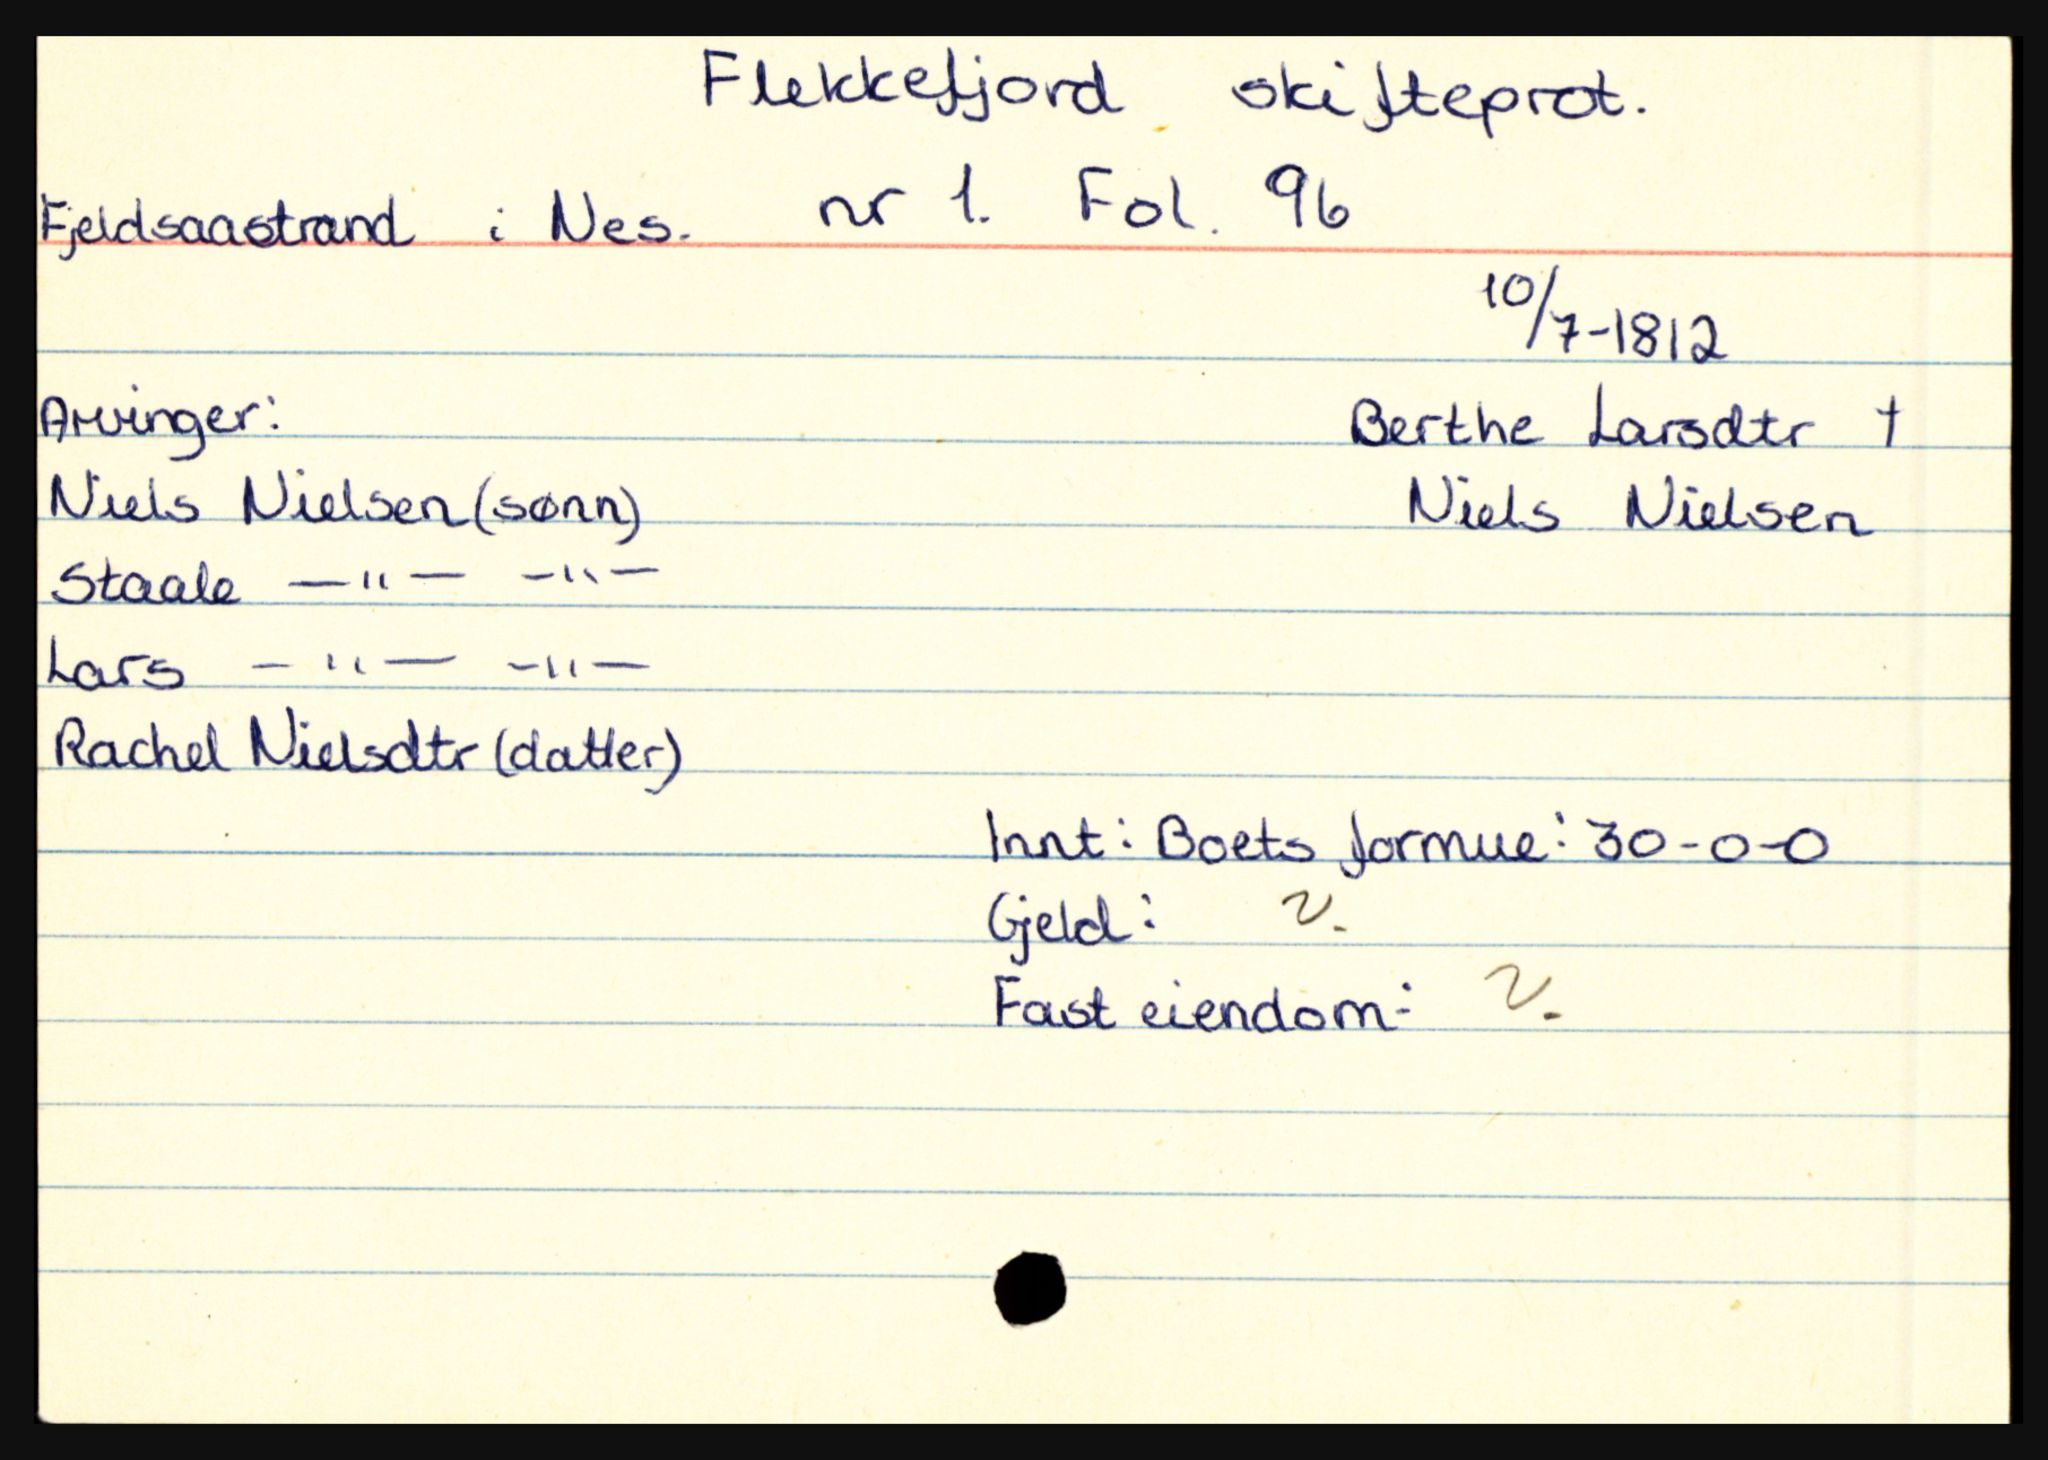 Flekkefjord skifteprot.
Fjeldsaastrand i Nes. nr 1. Fol. 96
10/7-1812
Arvinger: Berthe Larsdtr †
Niels Nielsen (sønn) Niels Nielsen
Staale —"— —"—
Lars —"— —"—
Rachel Nielsdtr (datter)
Innt: Boets formue: 30-0-0
Gjeld: v.
Fast eiendom: v.